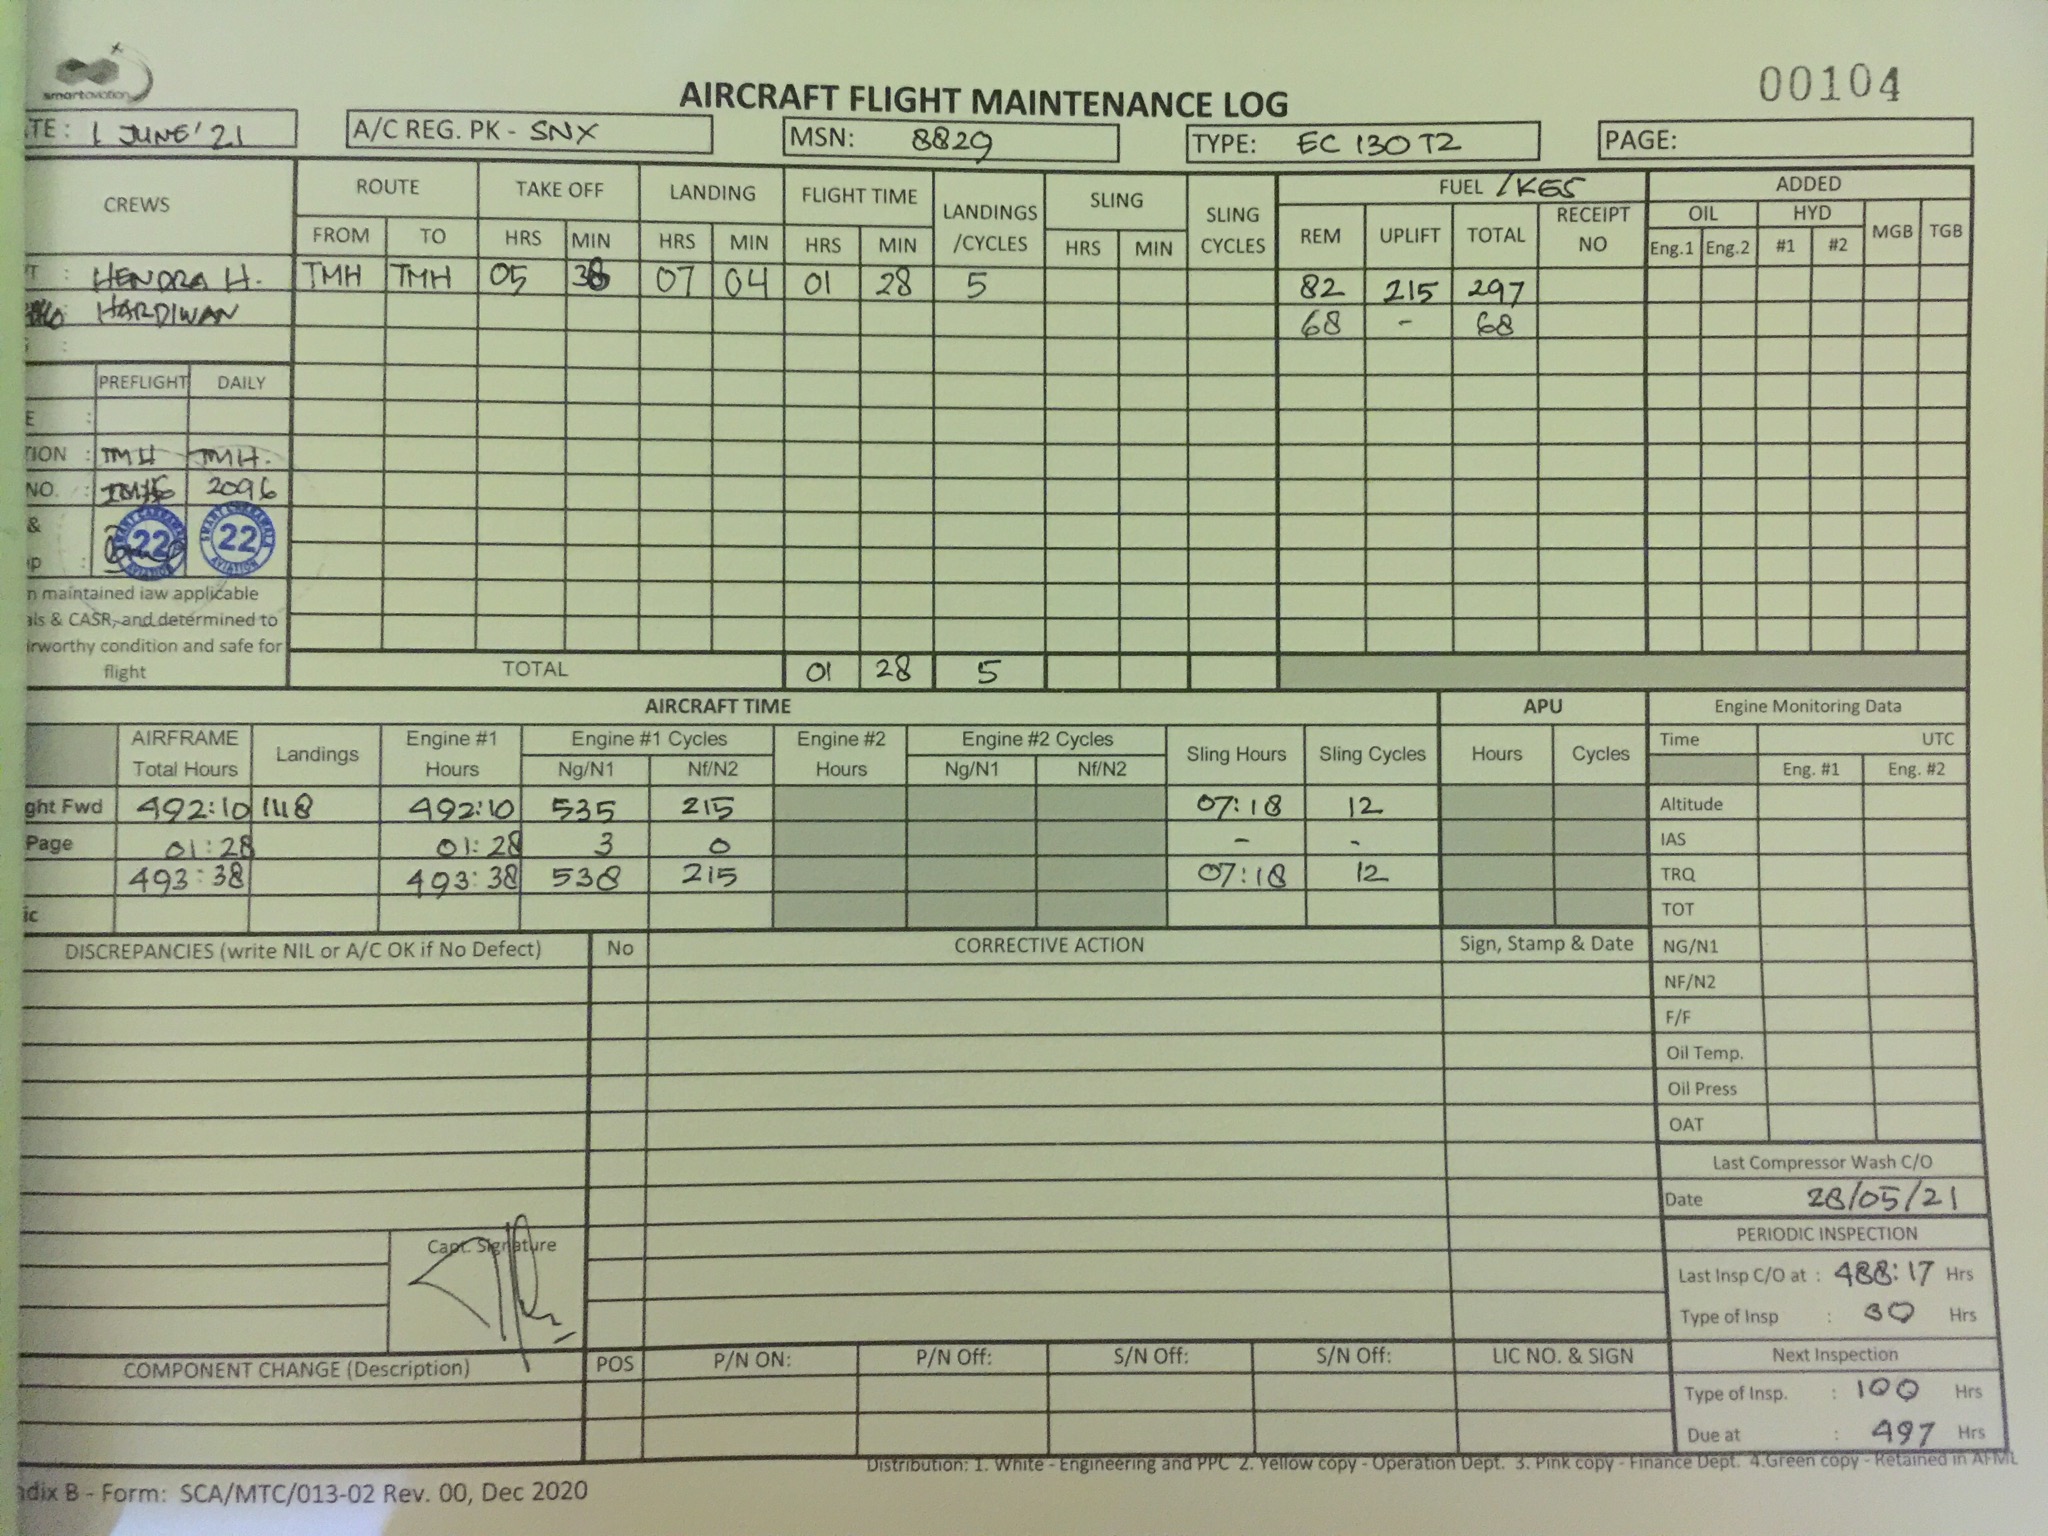 smartaviation
AIRCRAFT FLIGHT MAINTENANCE LOG
00104
TE: 1 JUNE '21
A/C REG. PK - SNX
MSN: 8829
TYPE: EC 130 T2
PAGE:
CREWS
ROUTE TAKE OFF LANDING FLIGHT TIME LANDINGS /CYCLES SLING SLING CYCLES FUEL /KGS ADDED
FROM TO HRS MIN HRS MIN HRS MIN HRS MIN REM UPLIFT TOTAL RECEIPT NO OIL HYD MGB TGB
Eng.1 Eng.2 #1 #2
: HENDRA H. TMH TMH 05 38 07 04 01 28 5 82 215 297
HARDIWAN 68 - 68
:
PREFLIGHT DAILY
E :
TION : TMH TMH.
NO. : 2096
&
p :
22 AVIATION
SMART CAKRAWALA 22 AVIATION
n maintained iaw applicable
als & CASR, and determined to
irworthy condition and safe for
flight
TOTAL 01 28 5
AIRCRAFT TIME APU Engine Monitoring Data
AIRFRAME Total Hours Landings Engine #1 Hours Engine #1 Cycles Engine #2 Hours Engine #2 Cycles Sling Hours Sling Cycles Hours Cycles Time UTC
Ng/N1 Nf/N2 Ng/N1 Nf/N2 Eng. #1 Eng. #2
ght Fwd 492:10 1118 492:10 535 215 07:18 12 Altitude
Page 01:28 01:28 3 0 - - IAS
493:38 493:38 538 215 07:18 12 TRQ
ic TOT
DISCREPANCIES (write NIL or A/C OK if No Defect) No CORRECTIVE ACTION Sign, Stamp & Date NG/N1
NF/N2
F/F
Oil Temp.
Oil Press
OAT
Last Compressor Wash C/O
Date 28/05/21
Capt. Signature
PERIODIC INSPECTION
Last Insp C/O at : 488:17 Hrs
Type of Insp : 30 Hrs
COMPONENT CHANGE (Description) POS P/N ON: P/N Off: S/N Off: S/N Off: LIC NO. & SIGN Next Inspection
Type of Insp. : 100 Hrs
Due at : 497 Hrs
Distribution: 1. White - Engineering and PPC 2. Yellow copy - Operation Dept. 3. Pink copy - Finance Dept. 4.Green copy - Retained in AFML
dix B - Form: SCA/MTC/013-02 Rev. 00, Dec 2020